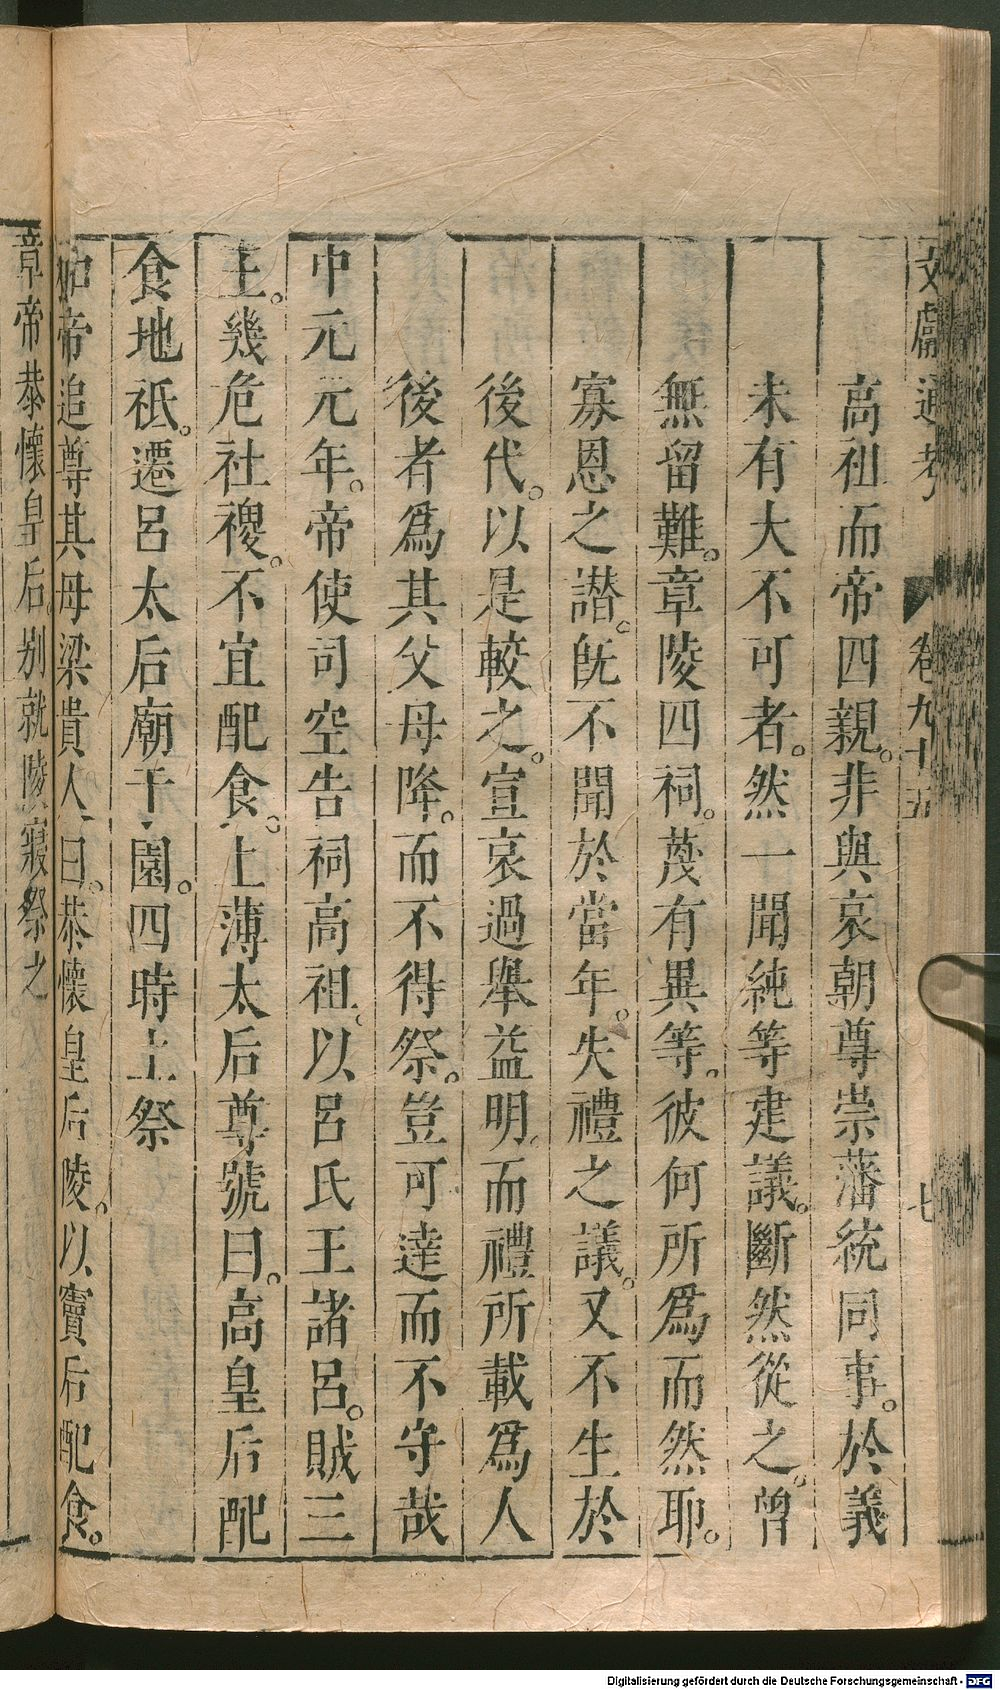 文獻通考 卷九十五 七
高祖而帝四親。非與哀朝尊崇藩統同事。於義
未有大不可者。然一聞純等建議。斷然從之。曾
無留難。章陵四祠。蔑有異等。彼何所爲而然耶。
寡恩之譖。旣不聞於當年。失禮之議。又不生於
後代。以是較之。宣哀過舉益明。而禮所載爲人
後者爲其父母降。而不得祭。豈可違而不守哉
中元元年。帝使司空告祠高祖。以呂氏王諸呂。賊三
王。幾危社禝。不宜配食。上薄太后尊號曰。高皇后配
食地祇。遷呂太后廟于園。四時上祭
和帝追尊其母梁貴人曰。恭懷皇后陵。以竇后配食。
章帝恭懷皇后別就陵寢祭之。
Digitalisierung gefördert durch die Deutsche Forschungsgemeinschaft - DFG